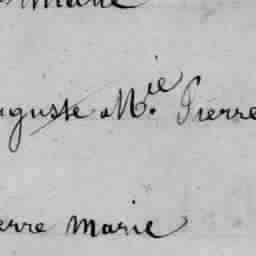 Marie
uguste M.ie Pierre
erre Marie